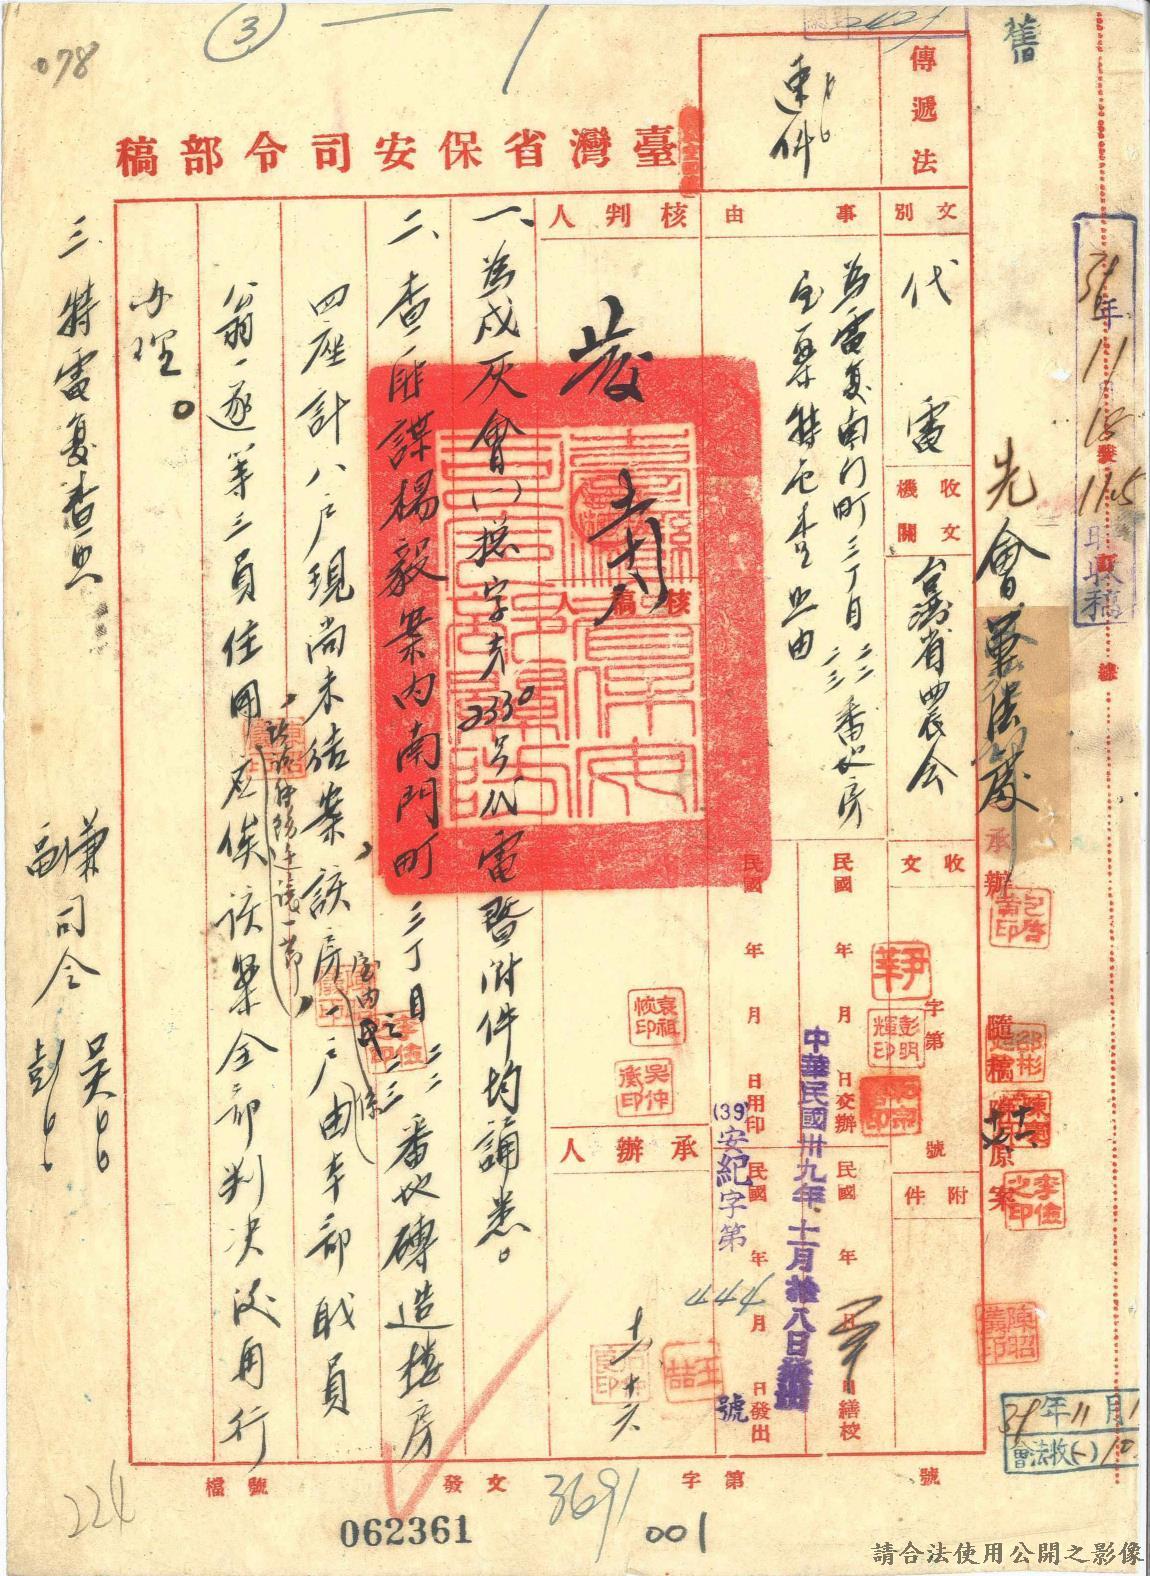 078
③
舊
臺灣省保安司令部稿
傳遞法
速件
文別
代電
收文機關
台灣省農会
事由
為電复南門町三丁目二二二三番地房
屋一案特电查照由
核判人
發
核稿人
承辦人
收文
字第
號
附件
民國 年 月 日交辦
民國 年 月 日繕校
民國 年 月 日用印
民國 年 月 日發出
中華民國卅九年十一月拾八日發出
(39)安紀字第
4447
號
先會軍法處
承辦
隨稿附原案
39年11月18
11.05
收稿
39年11月1
會法收(一)
一、為戍灰會(一)總字第2330号代電暨附件均誦悉。
二、查匪諜楊毅案内南門町三丁目之二二二三番地磚造樓房
四座計八戶現尚未結案,該房一戶由本部戝員
室内
係
翁一遂等三員住用
應俟該案全部判決後再行
办理。
三、特電复查照
兼司令 吳○○
副司令 彭○○
十一、十六
檔號
發文
字第
號
3691
224
062361
001
請合法使用公開之影像